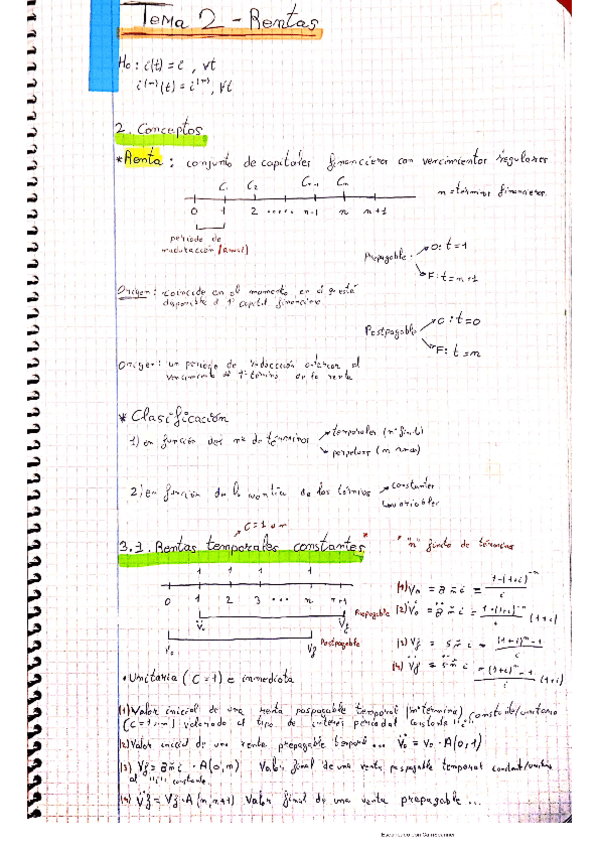 Tema 2 - Rentas
Ho: i(t) = i, ∀t
i⁽ᵐ⁾(t) = i⁽ᵐ⁾, ∀t
2. Conceptos
* Renta: conjunto de capitales financieros con vencimientos regulares
C₁ C₂ Cₙ₋₁ Cₙ
n = términos financieros
0 1 2 ..... n-1 n n+1
periodo de maduración (anual)
Prepagable
O: t=1
F: t=n+1
Origen: coincide con el momento en el q está
disponible el 1º capital financiero
Postpagable
O: t=0
F: t=n
Origen: un periodo de maduración anterior al
vencimiento del 1º término de la renta
* Clasificación
1) en función del nº de términos
temporales (nº finito)
perpetuas
2) en función de la cuantía de los términos
constantes
variables
C=1 um
3.1. Rentas temporales constantes*
* "n" finito de términos
1 1 1 1
0 1 2 3 ... n n+1
Prepagable
V̈₀ V̈f
Postpagable
V₀ Vf
(1) V₀ = a n̅ i = 1-(1+i)⁻ⁿ / i
(2) V̈₀ = ä n̅ i = 1-(1+i)⁻ⁿ / i (1+i)
(3) Vf = s n̅ i = (1+i)ⁿ-1 / i
(4) V̈f = s̈ n̅ i = (1+i)ⁿ-1 / i (1+i)
• Unitaria (C=1) e inmediata
(1) Valor inicial de una renta pospagable temporal (n términos) constante/unitaria
(C=1um) valorada al tipo de interés periodal constante "i".
(2) Valor inicial de una renta prepagable temporal ... V̈₀ = V₀ · A(0,1)
(3) Vf = a n̅ i · A(0,n) Valor final de una renta pospagable temporal constante/unitaria
al "i" constante.
(4) V̈f = Vf · A(n,n+1) Valor final de una renta prepagable ...
Escaneado con CamScanner